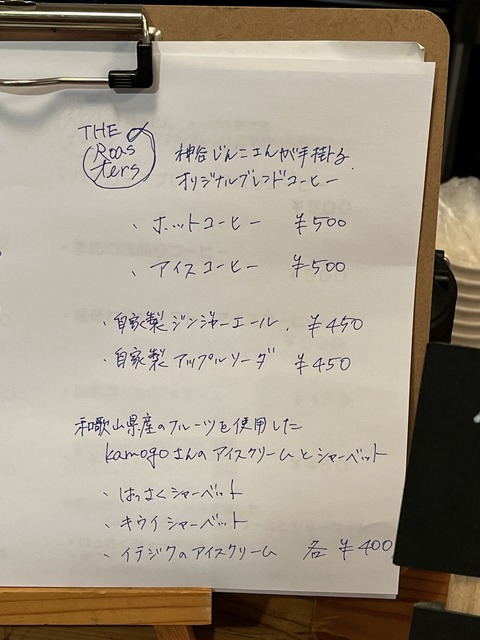 THE
Roas
ters
神谷じんこさんが手掛る
オリジナルブレンドコーヒー
、ホットコーヒー ¥500
、アイスコーヒー ¥500
・自家製ジンジャーエール. ¥450
・自家製アップルソーダ ¥450
和歌山県産のフルーツを使用した
kamogoさんのアイスクリームとシャーベット
、はっさくシャーベット
、キウイシャーベット
、イチジクのアイスクリーム 各 ¥400